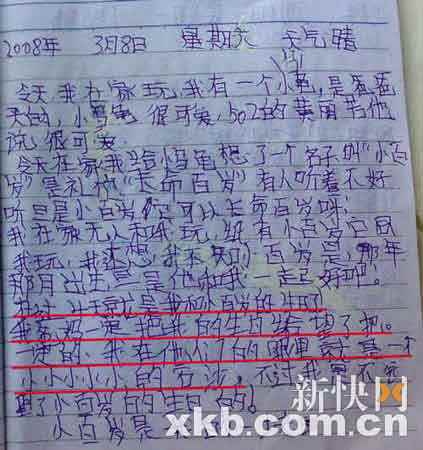 2008年 3月8日 星期六 天气晴
今天,我在家玩,我有一个小龟,是爸爸
天的,小乌龟 很可爱,502的黄丽若他
说,很可爱。
今天在家,我给小乌龟想了一个名子叫"小百
岁"是祝他"长命百岁"有人听着不好
听,但是小百岁你可以长命百岁呀!
我在家无人和我玩,只有小百岁它同
我玩,我还想,我不关的百岁是,那年
那月出生
是他和我一起好吧。
就是我和小百岁的生日了
我爸妈一定把我的生日给忘了把。
一定的,我在他们的眼里就是一个
小小小小小的石沙,不过我是不会
忘了小百岁的生日的!
小百岁是
新快网
xkb.com.cn